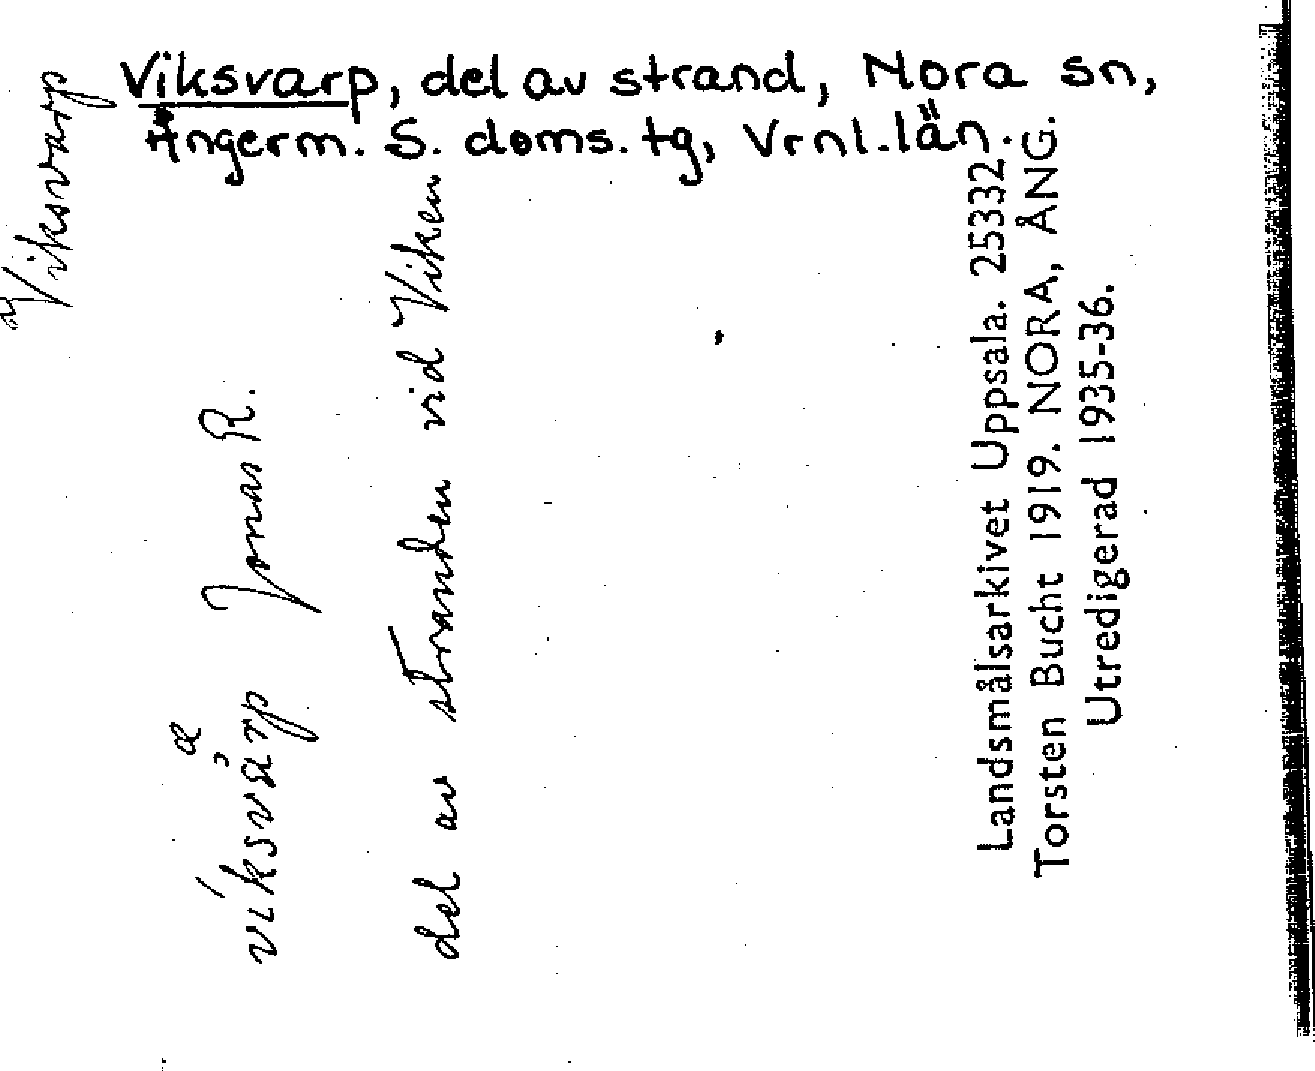 Viksvarp, del av strand, Nora sn,
Ångerm. S. doms. tg, Vrnl. län.
Viksvarp
víksvårp Jonas R.
æ
del av stranden vid Viken
Landsmålsarkivet Uppsala. 25332
Torsten Bucht 1919. NORA, ÅNG.
Utredigerad 1935-36.